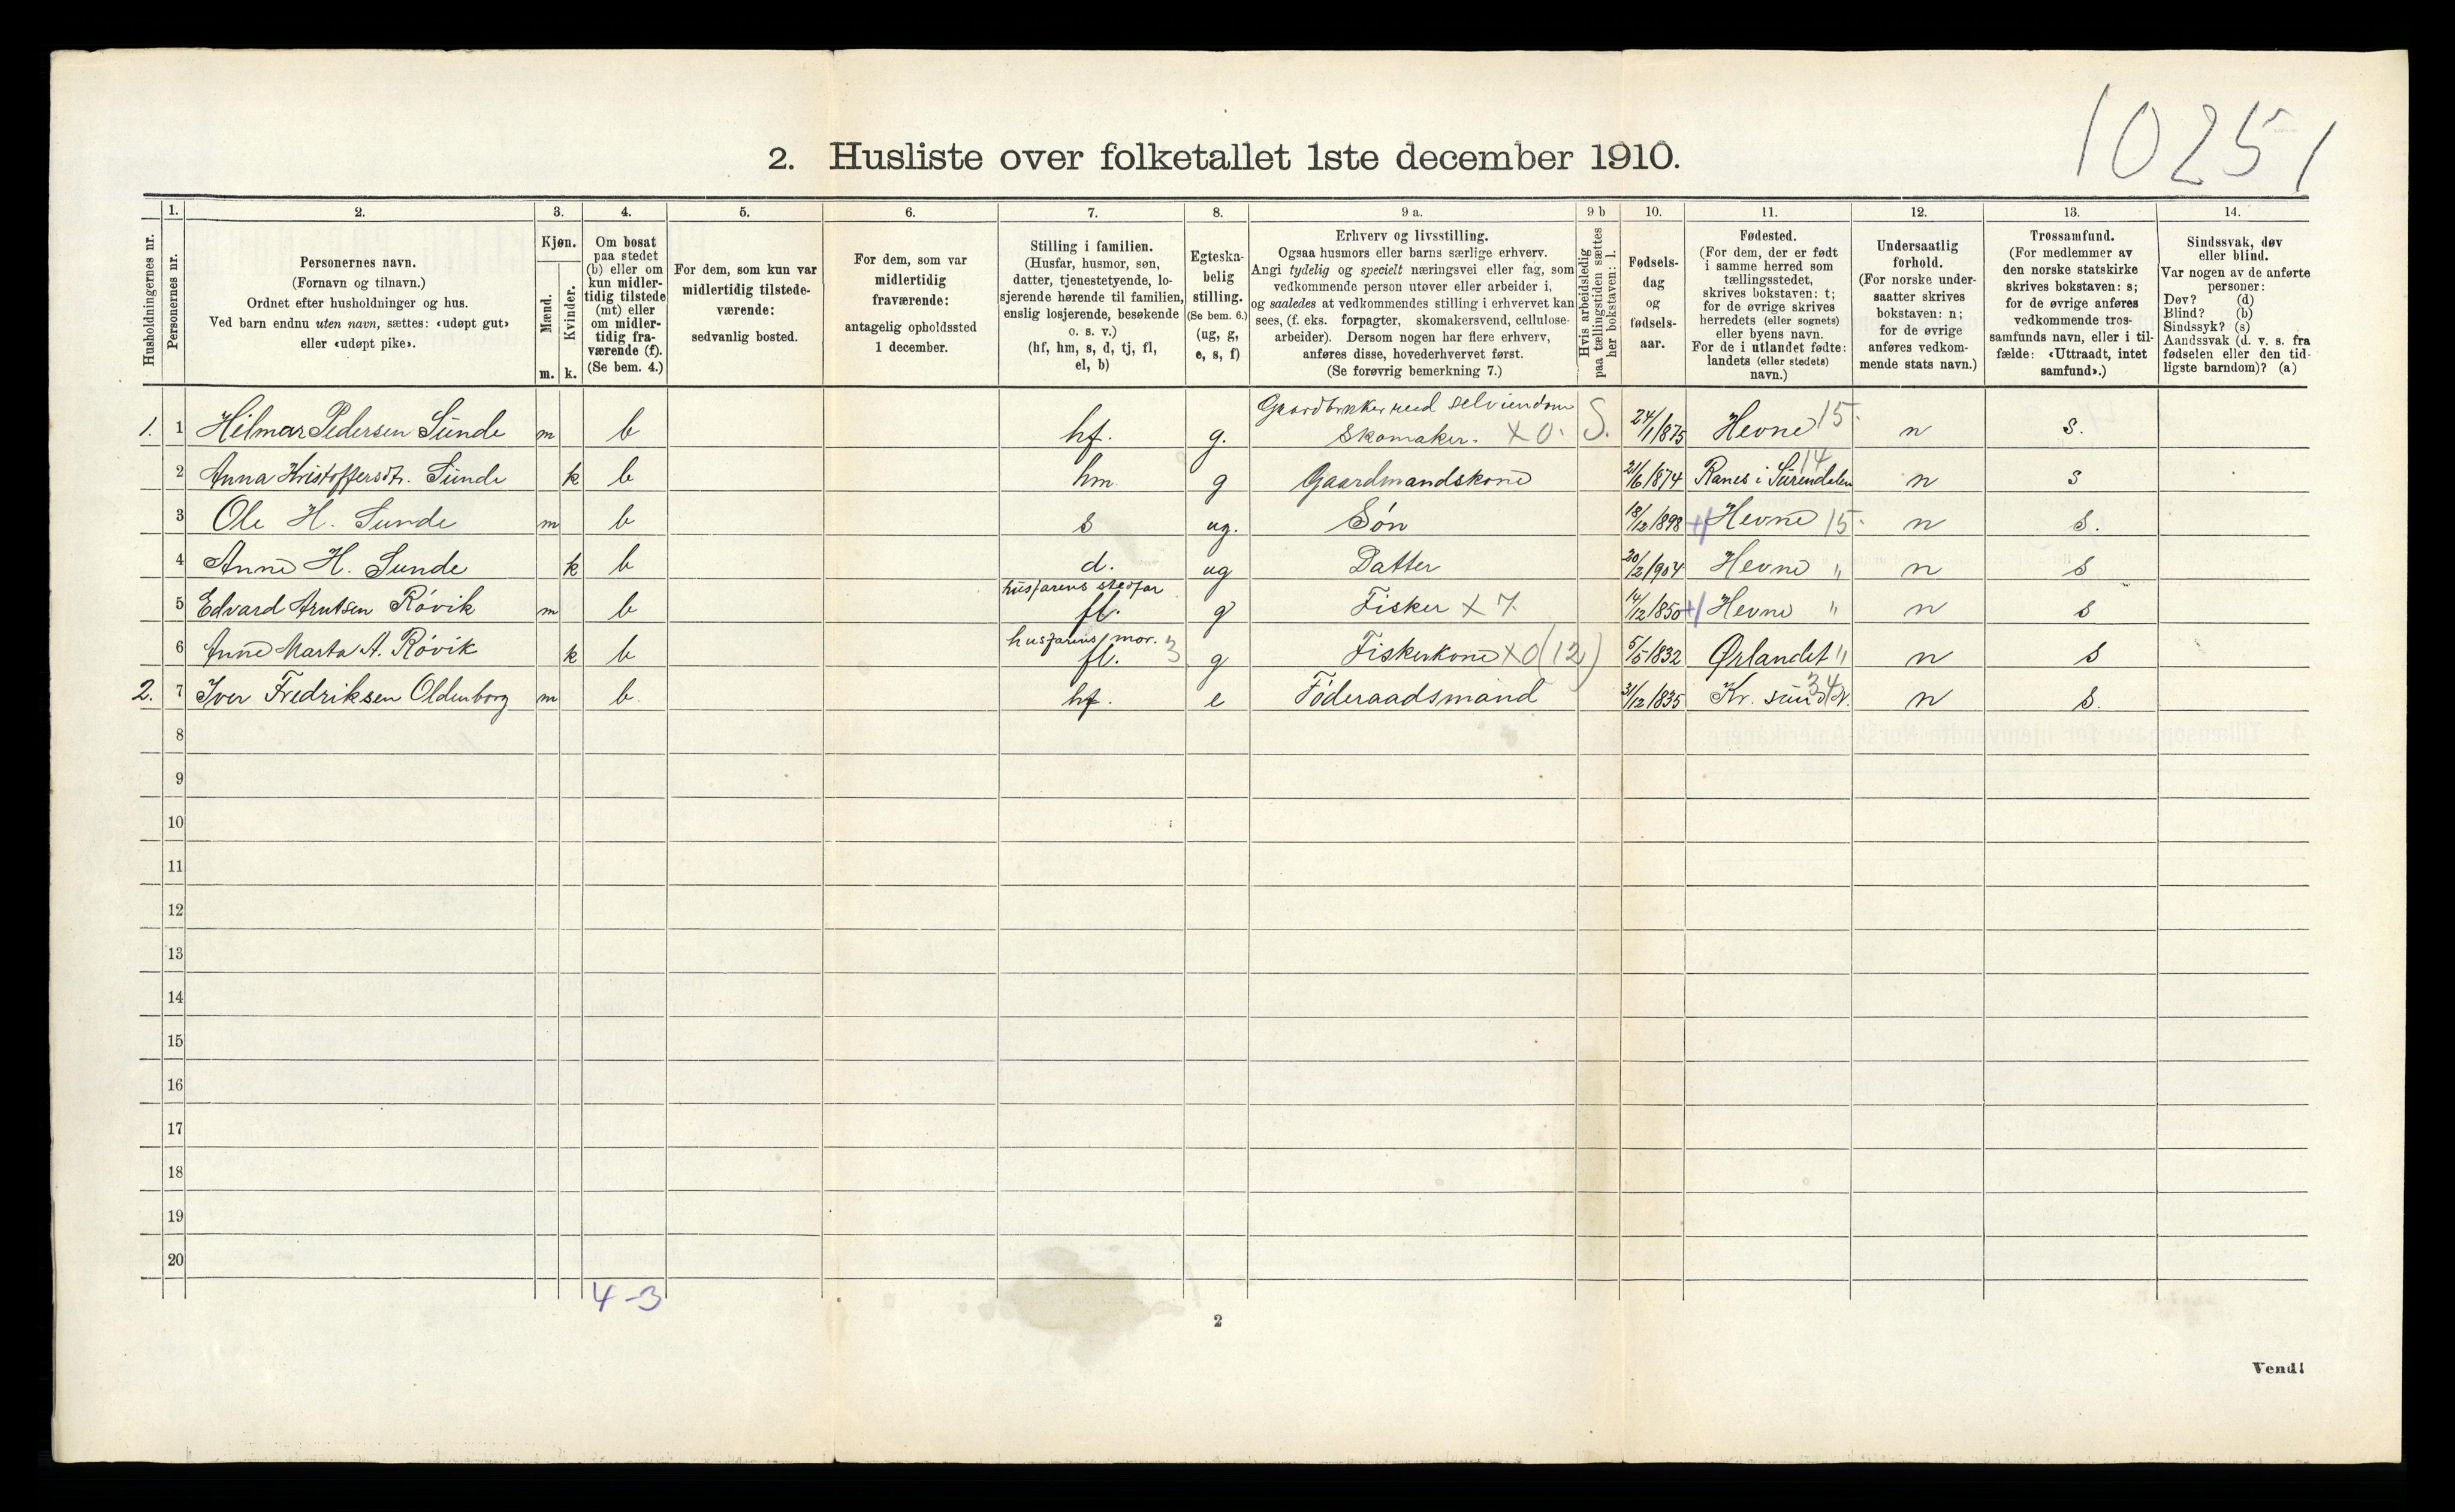 10251
2. Husliste over folketallet 1ste december 1910.
Husholdningernes nr.
1. Personernes nr.
2. Personernes navn.
(Fornavn og tilnavn.)
Ordnet efter husholdninger og hus.
Ved barn endnu uten navn, sættes: «udøpt gut»
eller «udøpt pike».
3. Kjøn.
Mænd. m.
Kvinder. k.
4. Om bosat
paa stedet
(b) eller om
kun midler-
tidig tilstede
(mt) eller
om midler-
tidig fra-
værende (f).
(Se bem. 4.)
5. For dem, som kun var
midlertidig tilstede-
værende:
sedvanlig bosted.
6. For dem, som var
midlertidig
fraværende:
antagelig opholdssted
1 december.
7. Stilling i familien.
(Husfar, husmor, søn,
datter, tjenestetyende, lo-
sjerende hørende til familien,
enslig losjerende, besøkende
o. s. v.)
(hf, hm, s, d, tj, fl,
el, b)
8. Egteska-
belig
stilling.
(Se bem. 6.)
(ug, g,
e, s, f)
9 a. Erhverv og livsstilling.
Ogsaa husmors eller barns særlige erhverv.
Angi tydelig og specielt næringsvei eller fag, som
vedkommende person utøver eller arbeider i,
og saaledes at vedkommendes stilling i erhvervet kan
sees, (f. eks. forpagter, skomakersvend, cellulose-
arbeider). Dersom nogen har flere erhverv,
anføres disse, hovederhvervet først.
(Se forøvrig bemerkning 7.)
9 b Hvis arbeidsledig
paa tællingstiden sættes
her bokstaven: l.
10. Fødsels-
dag
og
fødsels-
aar.
11. Fødested.
(For dem, der er født
i samme herred som
tællingsstedet,
skrives bokstaven: t;
for de øvrige skrives
herredets (eller sognets)
eller byens navn.
For de i utlandet fødte:
landets (eller stedets)
navn.)
12. Undersaatlig
forhold.
(For norske under-
saatter skrives
bokstaven: n;
for de øvrige
anføres vedkom-
mende stats navn.)
13. Trossamfund.
(For medlemmer av
den norske statskirke
skrives bokstaven: s;
for de øvrige anføres
vedkommende tros-
samfunds navn, eller i til-
fælde: «Uttraadt, intet
samfund».)
14. Sindssvak, døv
eller blind.
Var nogen av de anførte
personer:
Døv? (d)
Blind? (b)
Sindssyk? (s)
Aandssvak (d. v. s. fra
fødselen eller den tid-
ligste barndom)? (a)
Gaardbruker med selveiendom
1. 1 Hilmar Pedersen Sunde m b hf. g. Skomaker. X 0. S. 24/1/875 Hevne 15. n s.
2 Anna Kristoffersdt. Sunde k b hm g Gaardmandskone 21/6/1874 Ranes i Surendalen 14 n s
3 Ole H. Sunde m b s ug. Søn 18/12/1898 Hevne 15. n s.
4 Anne H. Sunde k b d. ug Datter 20/2/904 Hevne " n s
husfarens stedfar
5 Edvard Arntsen Røvik m b fl. g Fisker X 7. 14/12/1850 Hevne " n s
husfarens mor. 3
6 Anne Marta A. Røvik k b fl. g Fiskerkone X0(12) 5/5/1832 Ørlandet " n s
2. 7 Iver Fredriksen Oldenborg m b. hf. e Føderaadsmand 31/12/1835 Kr. sund N. 34 n s.
8
9
10
11
12
13
14
15
16
17
18
19
20
4-3
2
Vend!